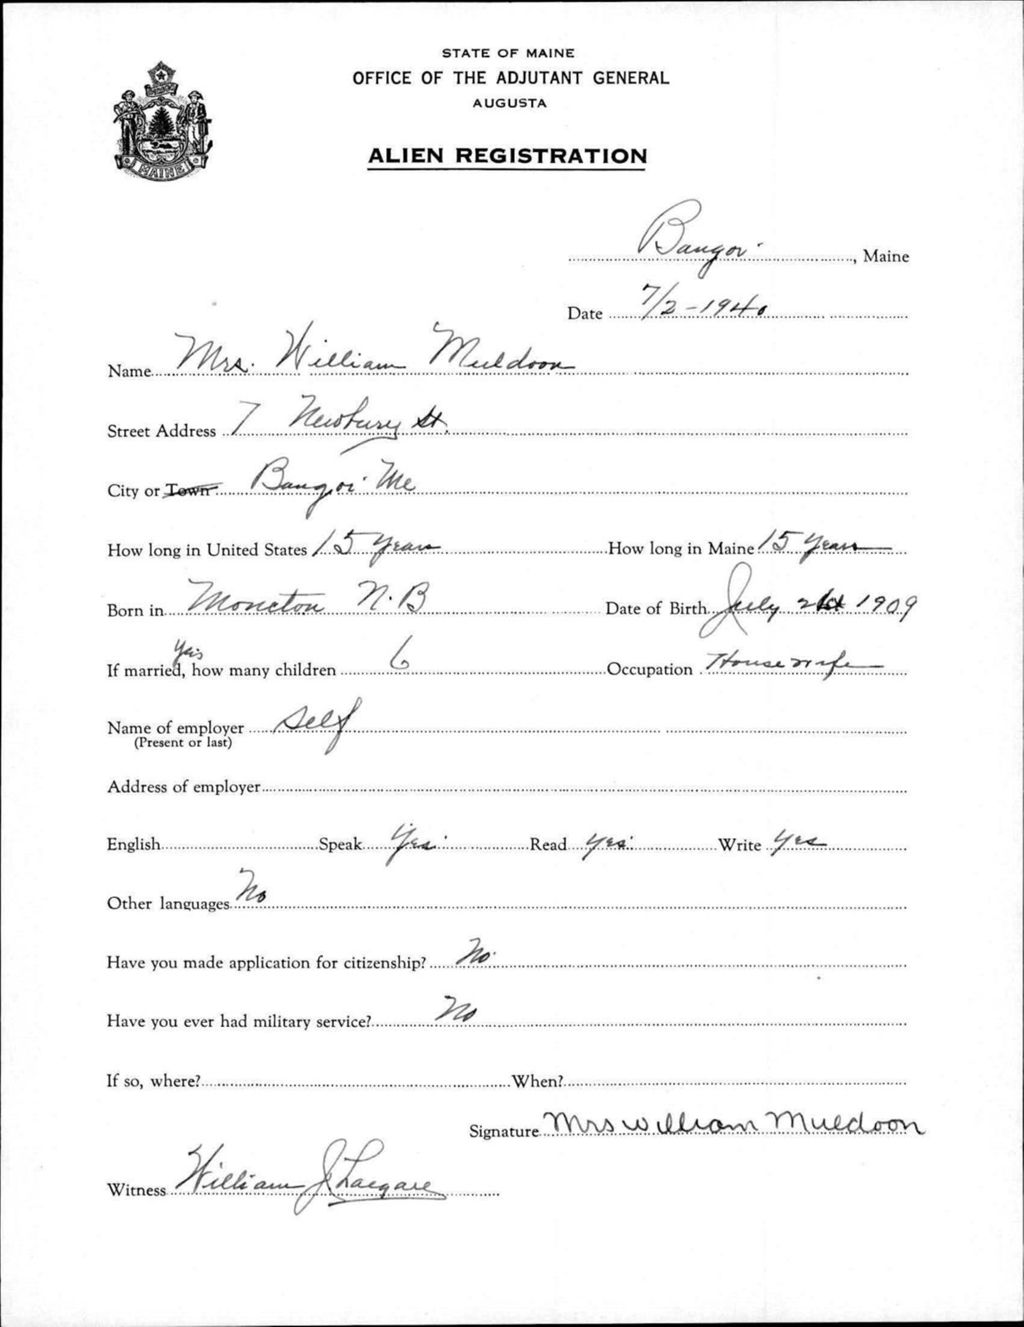 STATE OF MAINE
OFFICE OF THE ADJUTANT GENERAL
AUGUSTA
ALIEN REGISTRATION
MAINE
Bangor, Maine
Date 7/2-1940
Name Mrs. William Muldoon
Street Address 7 Newbury St.
City or Town Bangor Me
How long in United States 15 Years How long in Maine 15 Years
Born in Moncton N.B Date of Birth July 1909
yes
If married, how many children 6 Occupation Housewife
Name of employer Self
(Present or last)
Address of employer
English Speak Yes. Read Yes. Write Yes
Other languages No
Have you made application for citizenship? No
Have you ever had military service? No
If so, where? When?
Signature Mrs William Muldoon
Witness William J.